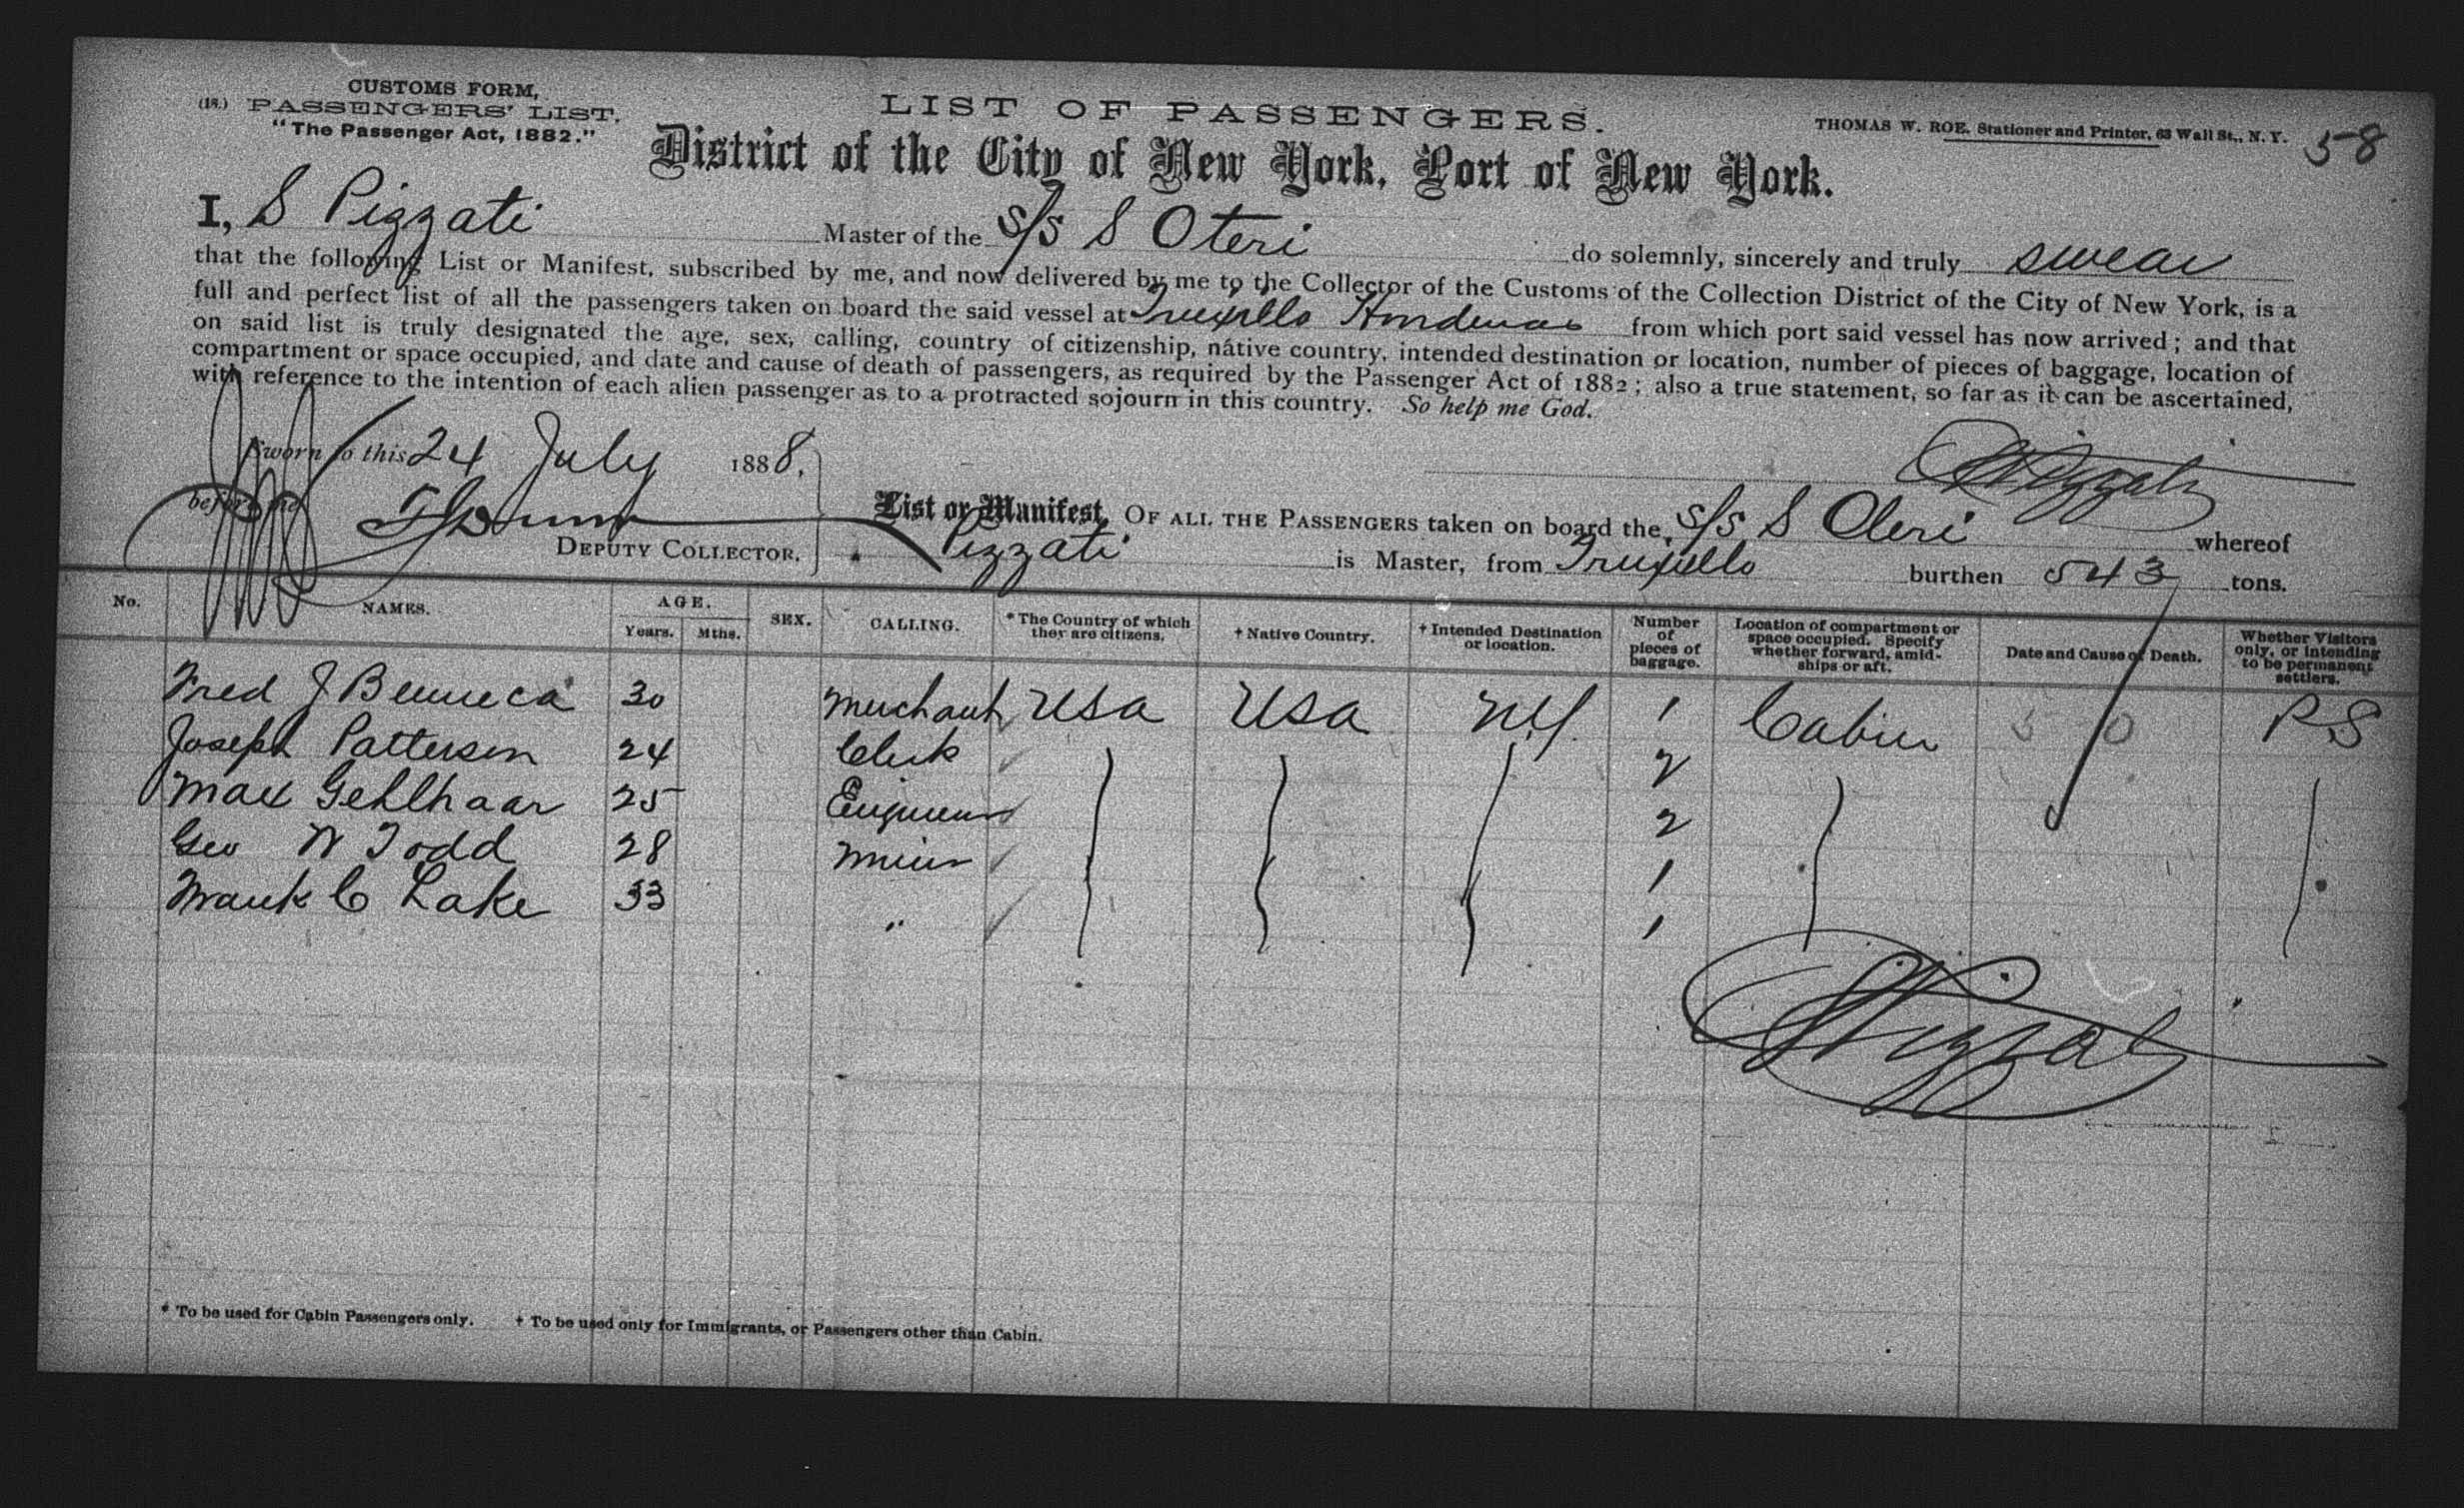 CUSTOMS FORM,
(18.) PASSENGERS' LIST.
"The Passenger Act, 1882."
LIST OF PASSENGERS.
THOMAS W. ROE. Stationer and Printer, 63 Wall St., N. Y.
58
District of the City of New York, Port of New York.
I, S Pizzati Master of the s/s S Oteri do solemnly, sincerely and truly swear
that the following List or Manifest, subscribed by me, and now delivered by me to the Collector of the Customs of the Collection District of the City of New York, is a
full and perfect list of all the passengers taken on board the said vessel at Truxillo Honduras from which port said vessel has now arrived; and that
on said list is truly designated the age, sex, calling, country of citizenship, native country, intended destination or location, number of pieces of baggage, location of
compartment or space occupied, and date and cause of death of passengers, as required by the Passenger Act of 1882; also a true statement, so far as it can be ascertained,
with reference to the intention of each alien passenger as to a protracted sojourn in this country. So help me God.
Sworn to this 24 July 1888.
S Pizzati
before me
DEPUTY COLLECTOR.
List or Manifest OF ALL THE PASSENGERS taken on board the s/s S Oteri whereof
Pizzati is Master, from Truxillo burthen 543 tons.
No. NAMES. AGE. Years. Mths. SEX. CALLING. * The Country of which they are citizens. † Native Country. † Intended Destination or location. Number of pieces of baggage. Location of compartment or space occupied. Specify whether forward, amidships or aft. Date and Cause of Death. Whether Visitors only, or intending to be permanent settlers.
Fred J 30 Merchant USA USA NY. 1 Cabin 0 P.S
Joseph Patterson 24 Clerk 2
Max Gehlhaar 25 Engineer 2
Geo W Todd 28 Miner 1
Frank C Lake 33 " 1
S Pizzati
* To be used for Cabin Passengers only. † To be used only for Immigrants, or Passengers other than Cabin.